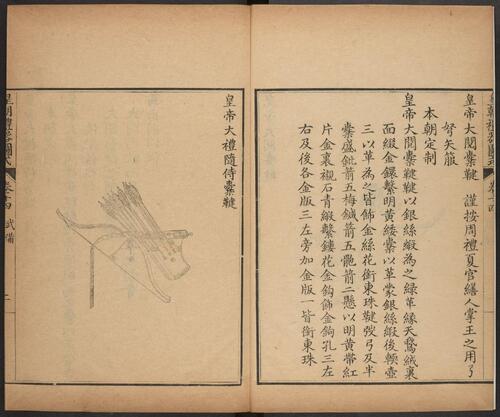 皇帝大閱櫜鞬 謹按周禮夏官繕人掌王之用弓
弩矢箙
本朝定制
皇帝大閱櫜鞬鞬以銀絲緞為之綠革緣天鵞絨裏
面綴金鐶繫明黃緌櫜以革蒙銀絲緞後鞕壺
三以革為之皆飾金絲花銜東珠鞬弢弓及半
櫜盛鈚箭五梅鍼箭五骲箭二懸以明黃帶紅
片金裏襯石青緞繫鏤花金鉤飾金鉤孔三左
右及後各金版三左旁加金版一皆銜東珠
皇帝大禮隨侍櫜鞬
皇朝禮器圖式 卷十四 武備